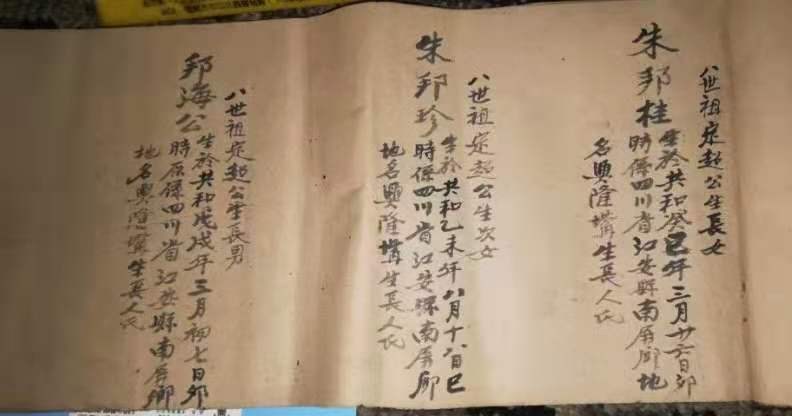 八世祖定超公生長女
朱邦桂
生於共和癸巳年三月廿六日卯
時係四川省江安縣南屏鄉地
名興隆溝生長人氏
八世祖定超公生次女
朱邦珍
生於共和乙未年八月十八日巳
時係四川省江安縣南屏鄉
地名興隆溝生長人氏
八世祖定超公生長男
邦海公
生於共和戊戌年三月初七日卯
時原係四川省江安縣南屏鄉
地名興隆溝生長人氏